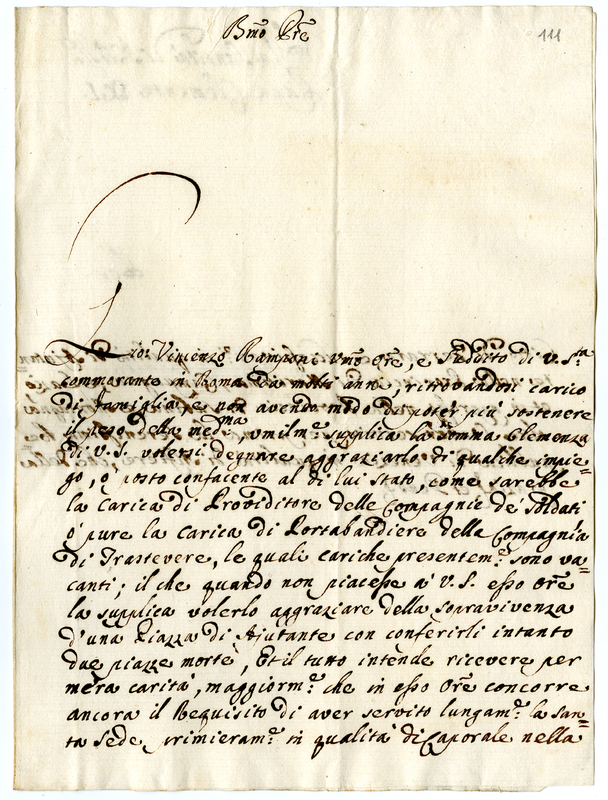 Bmõ Prẽ
111
Gio: Vincenzo Ramponi Vmõ Orẽ, e Suddito di V. Sta
commorante in Roma da molti anni, ritrovandosi carico
di famiglia, e non avendo modo di poter più sostenere
il peso della medma, umilme supplica la somma Clemenza
di V. S. volersi degnare aggraziarlo di qualche impie=
go, ò posto confacente al di lui stato, come sarebbe
la Carica di Providitore delle Compagnie de' Soldati
ò pure la Carica di Portabandiere della Compagnia
di Trastevere, le quali cariche presentemte sono va=
canti; il che quando non piacesse à V. S. esso Orẽ
la supplica volerlo aggraziare della sopravivenza
d'una Piazza di Aiutante con conferirli intanto
due piazze morte, Et il tutto intende ricevere per
mera carità, maggiormte che in esso Orẽ concorre
ancora il Requisito di aver servito lungamte la San=
ta Sede primieramte in qualità di Caporale nella